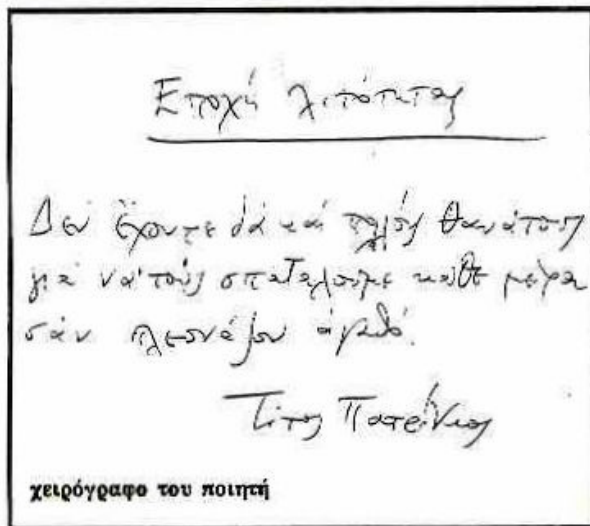 Εποχή λιτότητας
Δεν έχουμε δά καί πολλούς θανάτους
γιά νά τούς σπαταλούμε κάθε μέρα
σάν πλεονάζον ἀγαθό.
Τίτος Πατρίκιος
χειρόγραφο του ποιητή